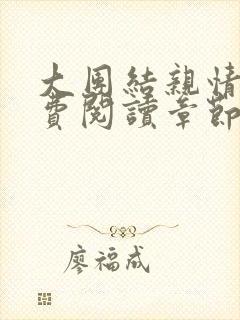 大团結親情
費閱讀章節
廖福成